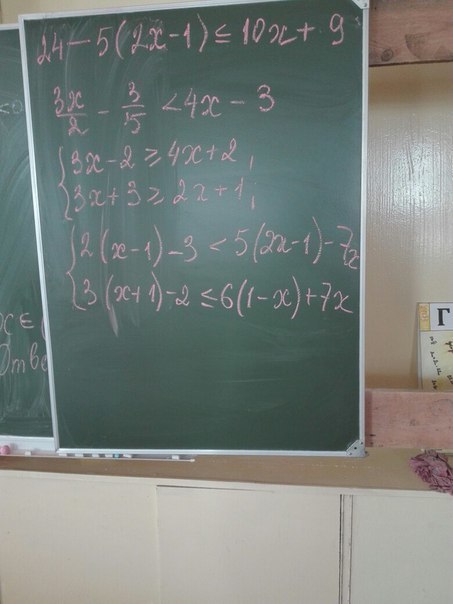 24 - 5(2x-1) ≤ 10x + 9
3x/2 - 3/5 < 4x - 3
{ 3x - 2 ≥ 4x + 2,
3x + 3 ≥ 2x + 1;
{ 2(x-1) - 3 < 5(2x-1) - 7x
3(x+1) - 2 ≤ 6(1-x) + 7x
x ∈ (
Отве
Г